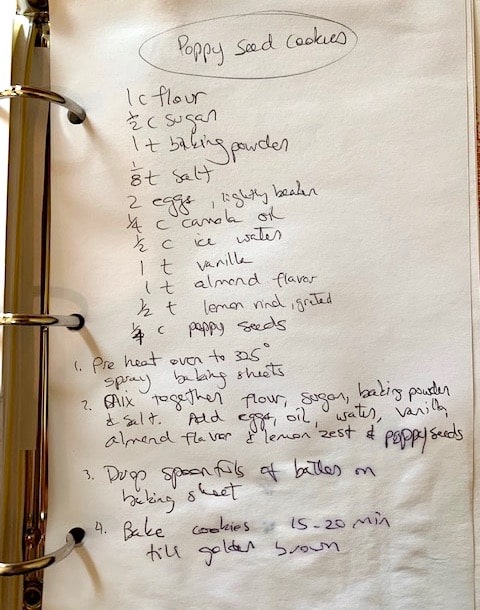 Poppy Seed Cookies
1 c flour
1/2 c sugar
1 t baking powder
1/8 t salt
2 eggs, lightly beaten
1/4 c canola oil
1/2 c ice water
1 t vanilla
1 t almond flavor
1/2 t lemon rind, grated
1/4 c poppy seeds
1. Pre heat oven to 325°
spray baking sheets
2. Mix together flour, sugar, baking powder
& salt. Add eggs, oil, water, vanilla,
almond flavor & lemon zest & poppyseeds
3. Drop spoonfuls of batter on
baking sheet
4. Bake cookies 15-20 min
till golden brown